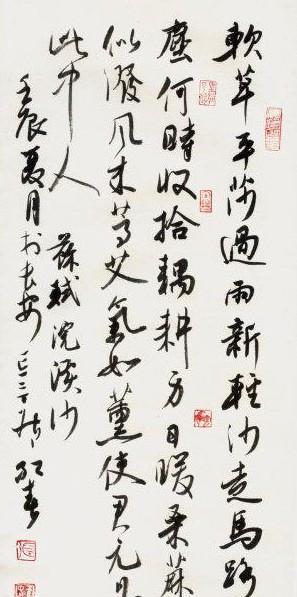 軟草平莎過雨新輕沙走馬路
塵何時收拾耦耕身日暖桑蔴
似潑风来蒿艾氣如薰使君元是
此中人
蘇軾浣溪沙
壬辰夏月於長安